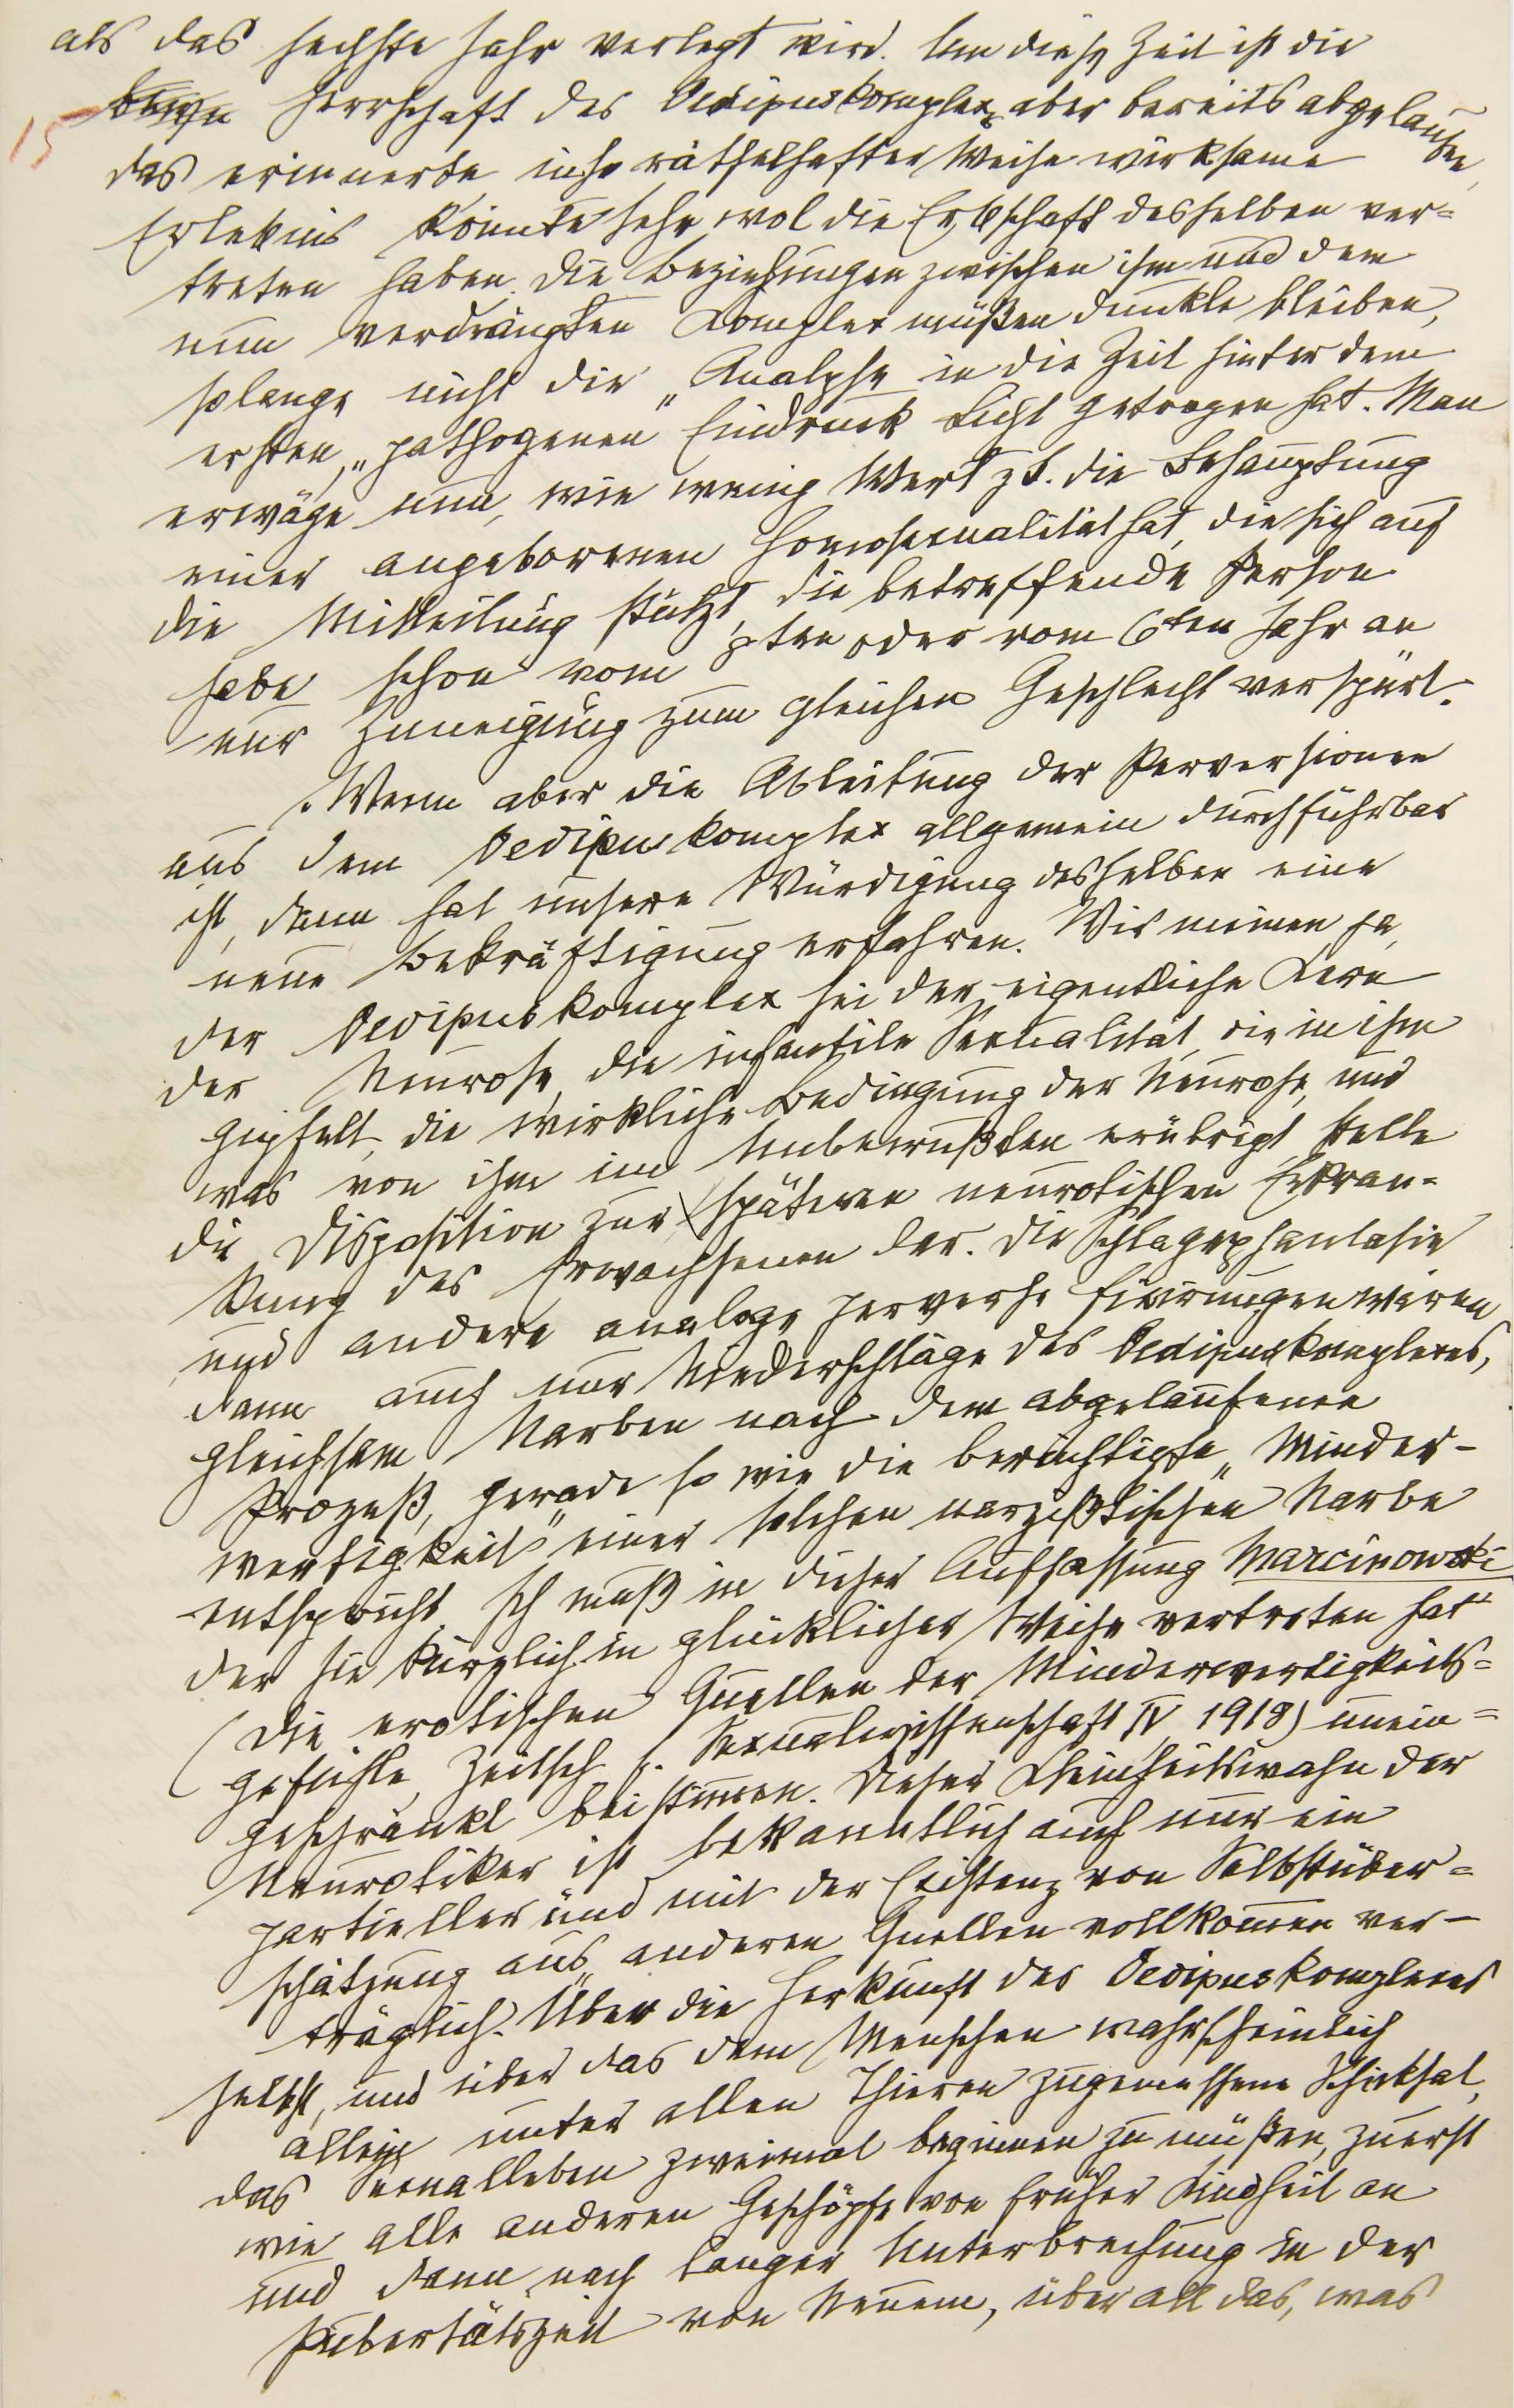 als das sechste Jahr verlegt wird. Um diese Zeit ist die
15 Herrschaft des Oedipuskomplex aber bereits abgelaufen,
das erinnerte, in so räthselhafter Weise wirksame
Erlebnis könnte sehr wol die Erbschaft desselben ver=
treten haben. Die Beziehungen zwischen ihm und dem
nun verdrängten Complex müßen dunkle bleiben,
solange nicht die „Analyse in die Zeit hinter dem
ersten „pathogenen“ Eindruck Licht getragen hat. Man
erwäge nun, wie wenig Wert zB. die Behauptung
einer angeborenen Homosexualität hat, die sich auf
die Mitteilung stützt, die betreffende Person
habe schon vom 8ten oder vom 6ten Jahr an
nur Zuneigung zum gleichen Geschlecht verspürt.
Wenn aber die Ableitung der Perversionen
aus dem Oedipuskomplex allgemein durchführbar
ist, dann hat unsere Würdigung desselben eine
neue Bekräftigung erfahren. Wir meinen ja,
der Oedipuskomplex sei der eigentliche Kern
der Neurose, die infantile Sexualität, die in ihm
gipfelt, die wirkliche Bedingung der Neurose, und
was von ihm im Unbewußten erübrigt, stelle
die Disposition zur späteren neurotischen Erkran=
kung des Erwachsenen dar. Die Schlagephantasie
und andere analoge perverse Fixirungen wären
dann auch nur Niederschläge des Oedipuskomplexes,
gleichsam Narben nach dem abgelaufenen
Prozeß, gerade so wie die berüchtigte „Minder-
wertigkeit“ einer solchen narzißtischen Narbe
entspricht. Ich muß in dieser Auffassung Marcinowski
der sie kürzlich in glücklicher Weise vertreten hat
(Die erotischen Quellen der Minderwertigkeits=
gefühle, Zeitsch f. Sexualwissenschaft IV 1918) unein=
geschränkt beistimmen. Dieser Kleinheitswahn der
Neurotiker ist bekanntlich auch nur ein
partieller und mit der Existenz von Selbstüber=
schätzung aus anderen Quellen vollkommen ver-
träglich. Über die Herkunft des Oedipuskomplexes
selbst, und über das dem Menschen wahrscheinlich
allein unter allen Thieren zugemessene Schicksal,
das Sexualleben zweimal beginnen zu müßen, zuerst
wie alle anderen Geschöpfe von früher Kindheit an
und dann nach langer Unterbrechung in der
Pubertätszeit von Neuem, über all das, was